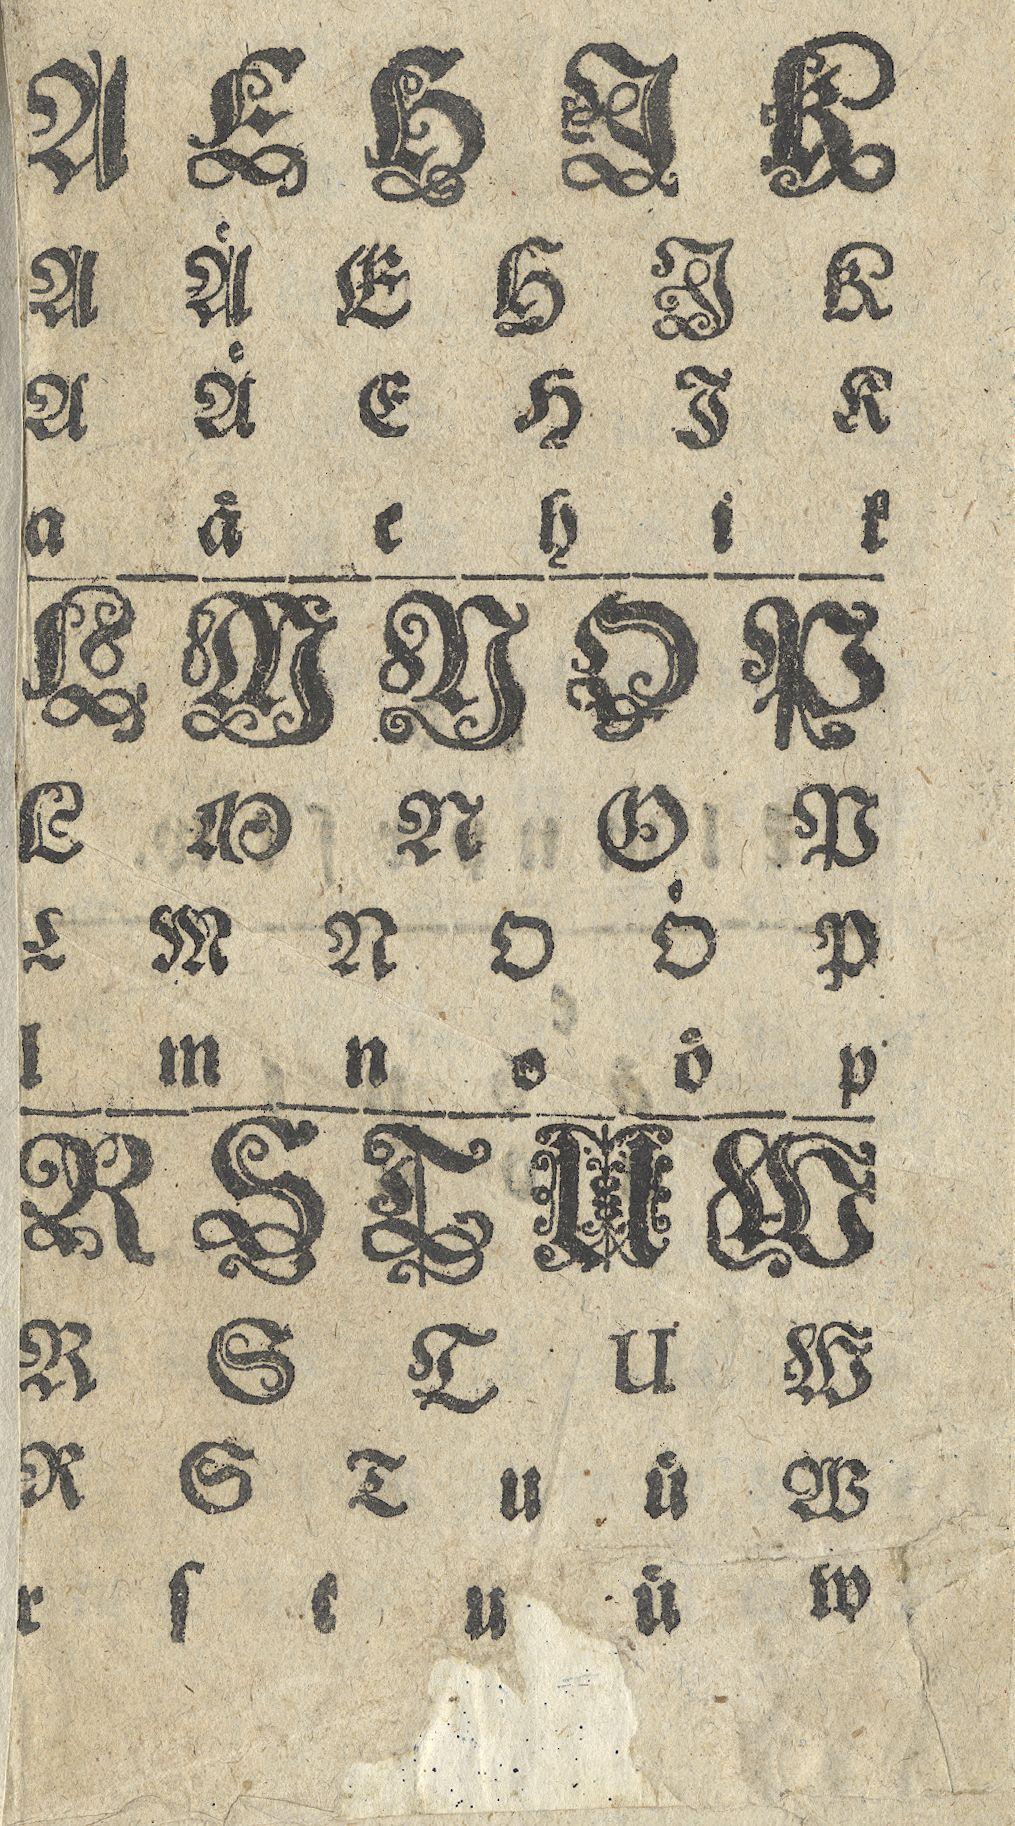 A E H J K
A Aͤ E H J K
A Aͤ E H J K
a aͤ e h i k
L M N O P
L M N O P
L M N O Oͤ P
l m n o oͤ p
R S T U W
R S T U W
R S T u uͤ W
r ſ t u uͤ w